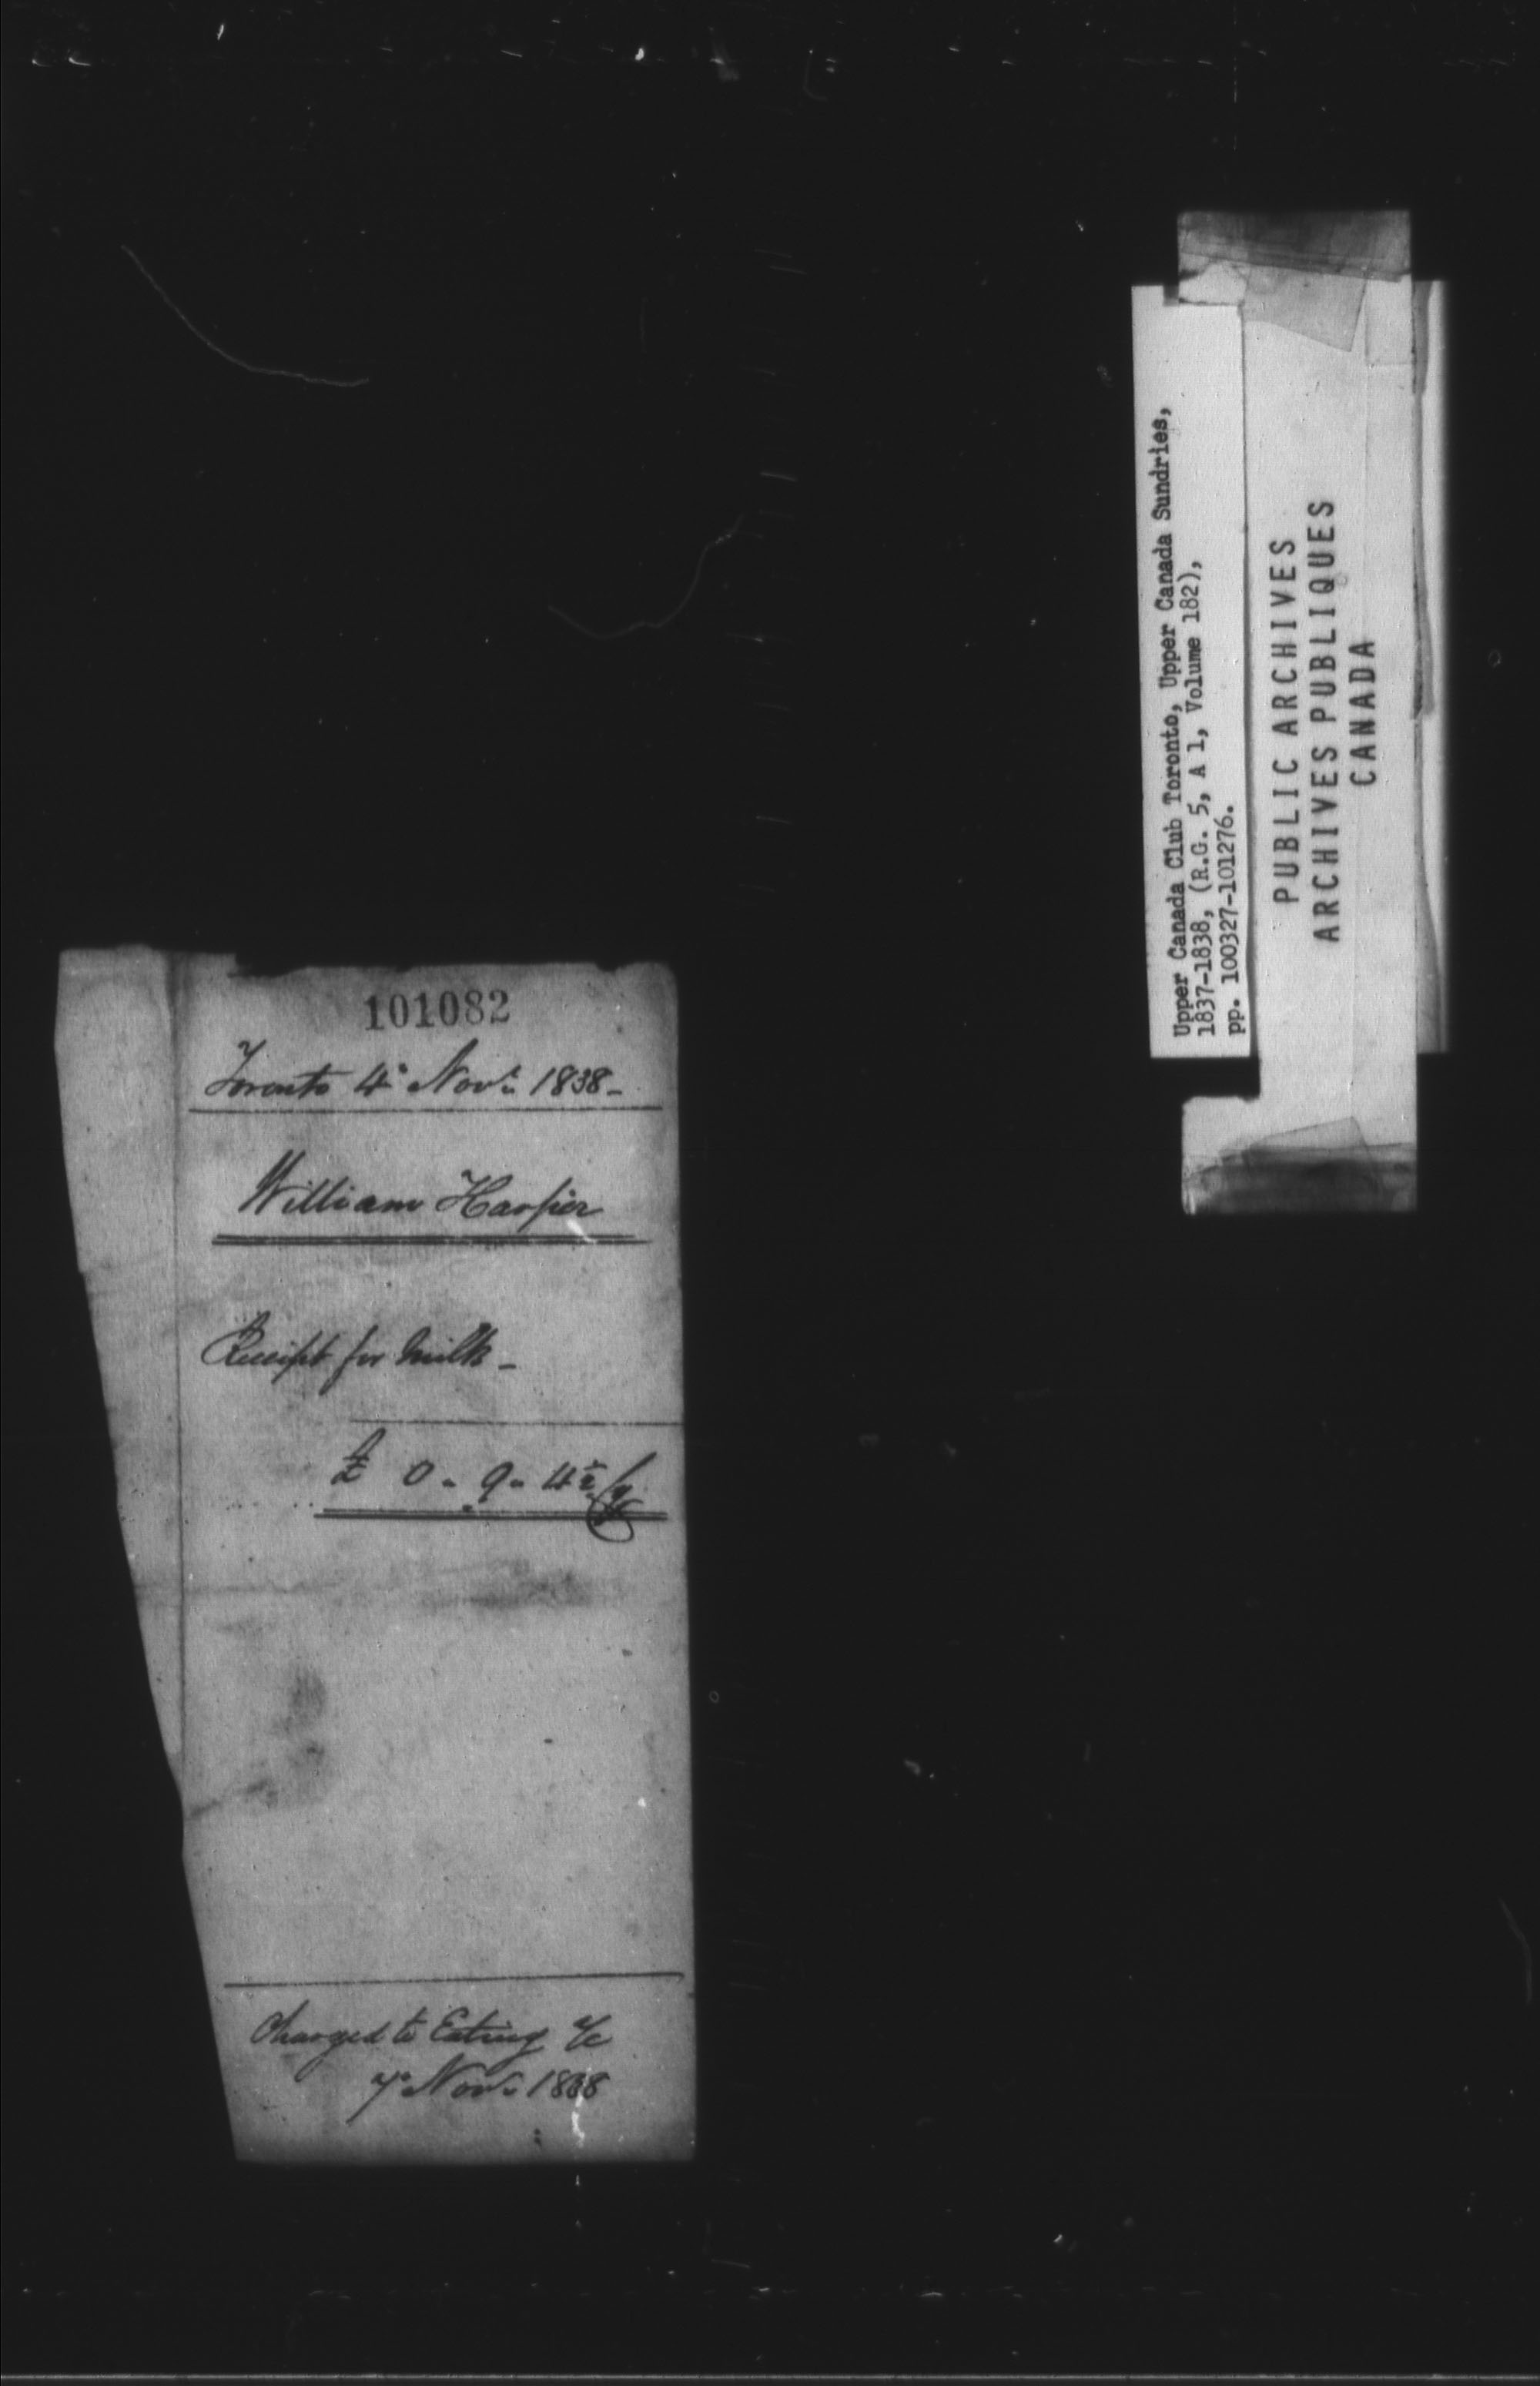 101082
Toronto 4° Novr. 1838-
William Harper
Receipt for Milk-
£ 0-9-4½
Charged to Eating a/c
7° Novr. 1838
Upper Canada Club Toronto, Upper Canada Sundries,
1837-1838, (R.G. 5, A 1, Volume 182),
pp. 100327-101276.
PUBLIC ARCHIVES
ARCHIVES PUBLIQUES
CANADA